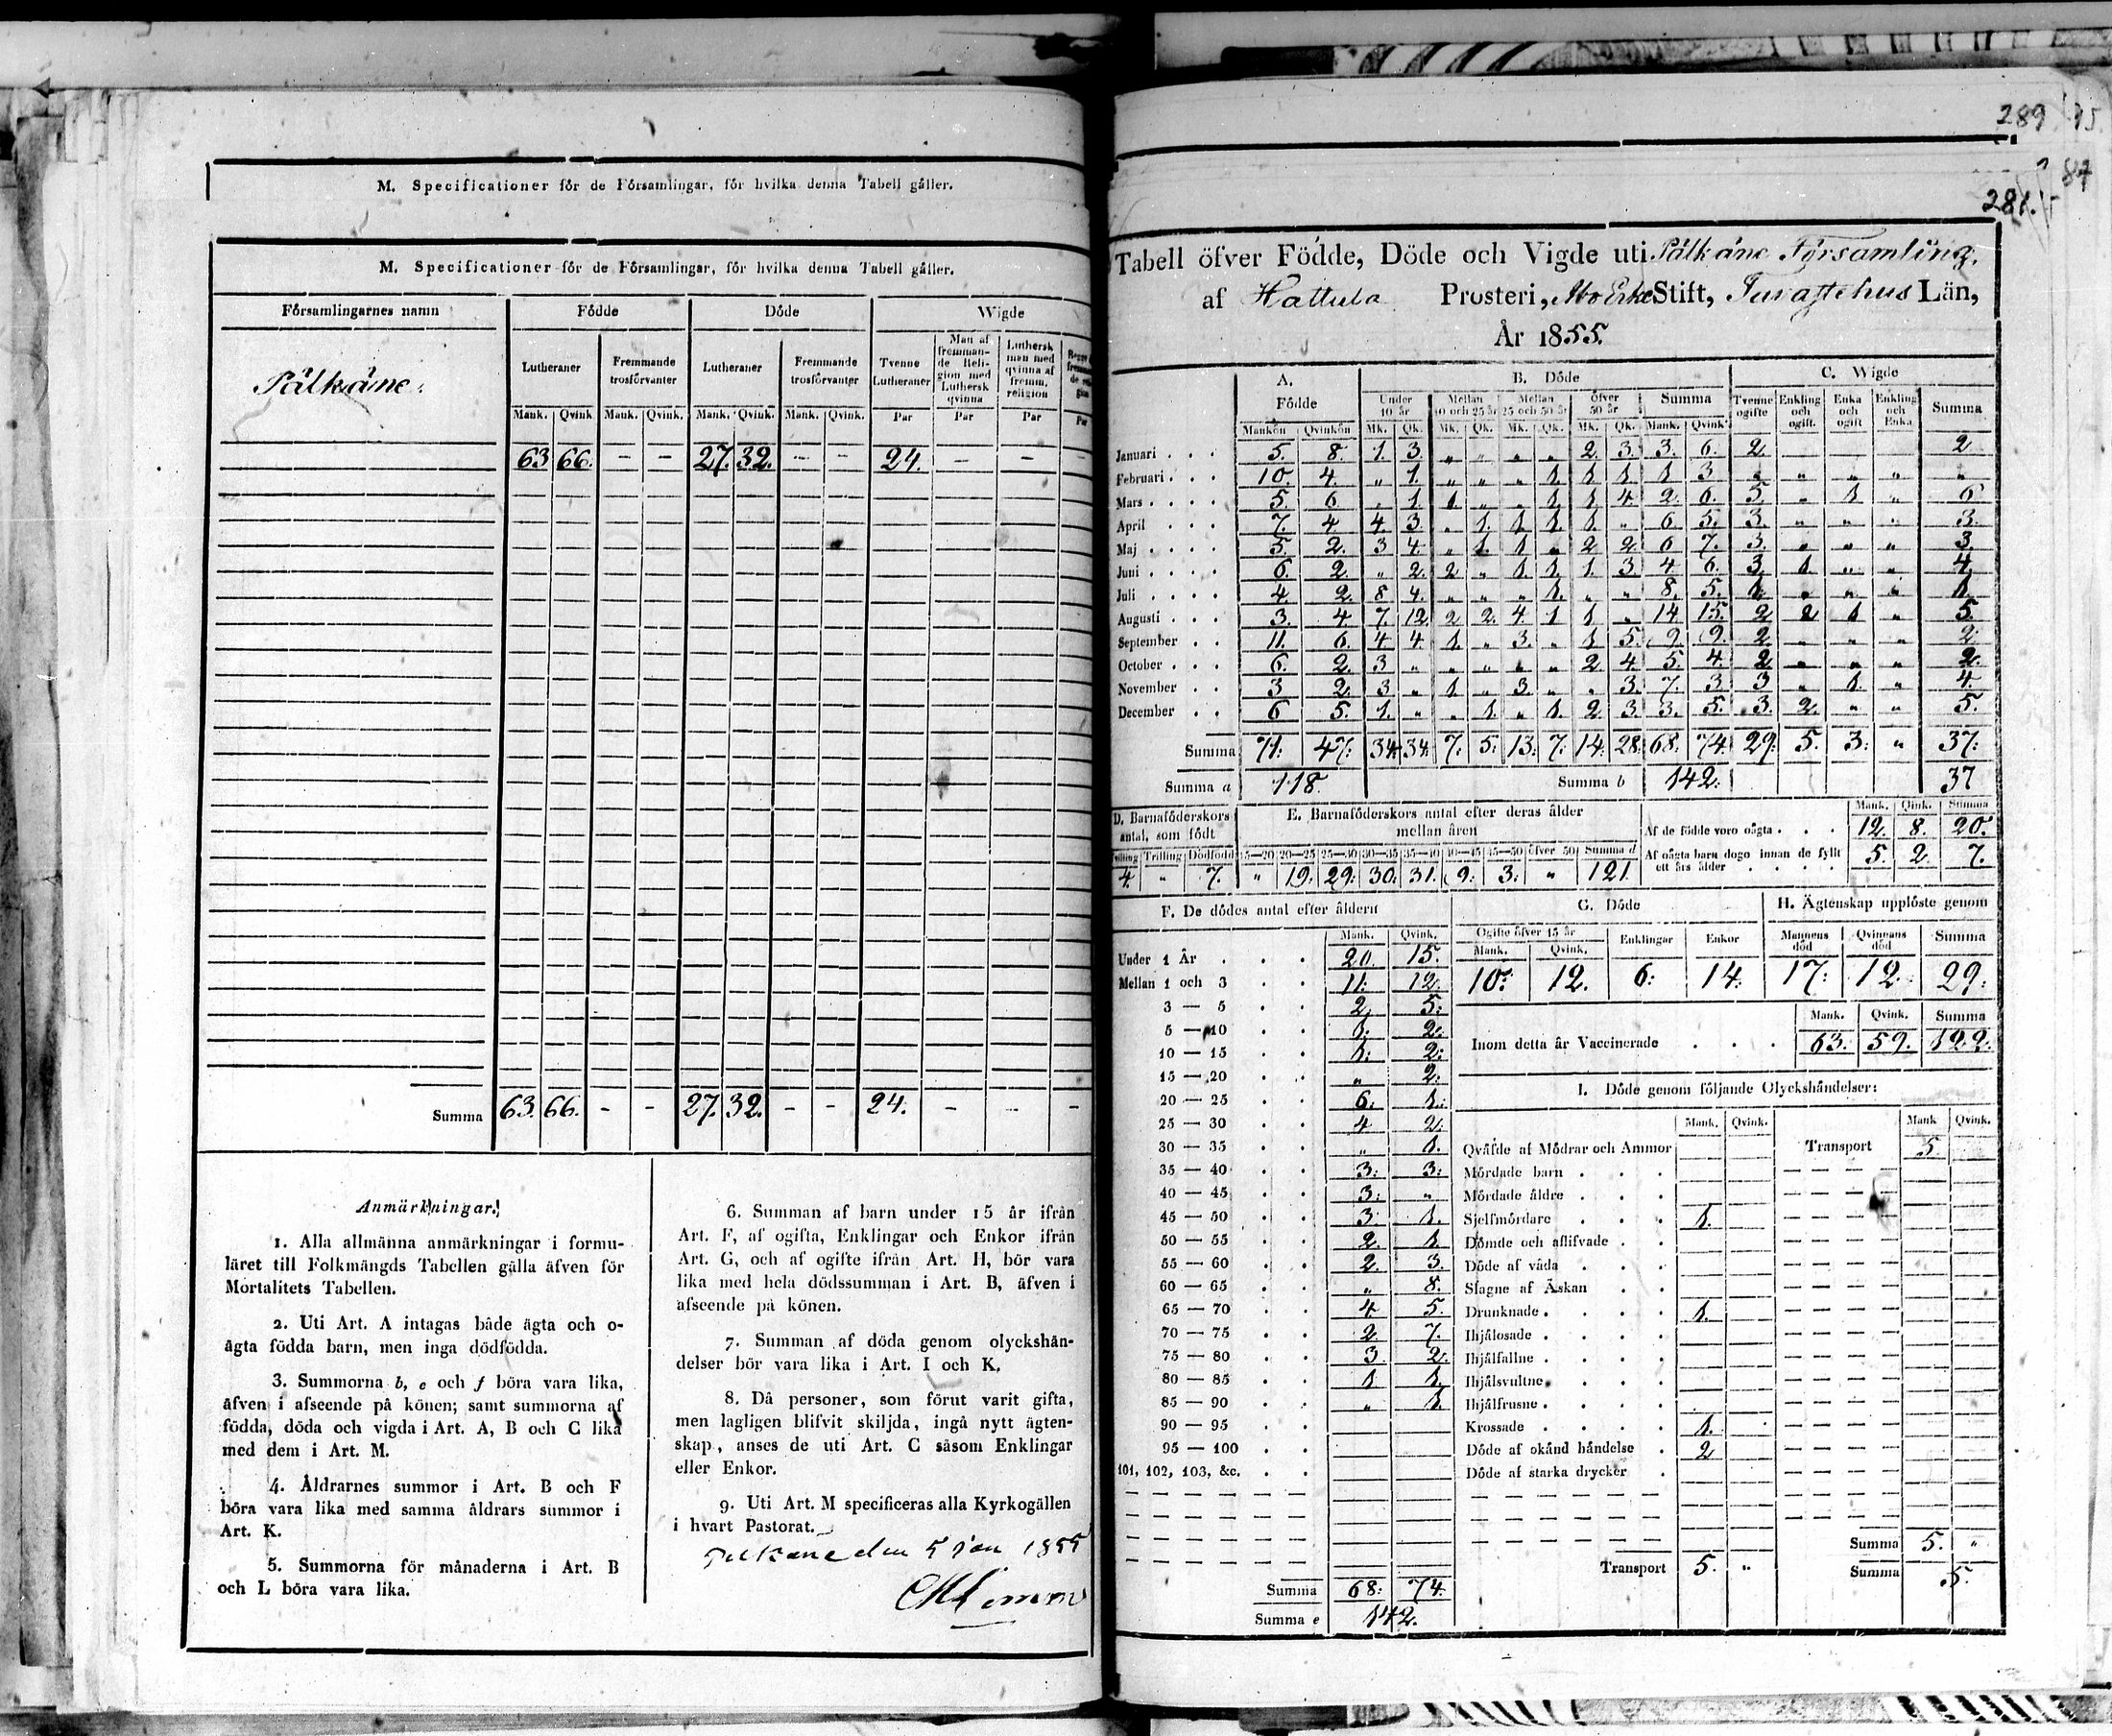 M. Specificationer för de Församlingar, för hvilka denna Tabell gäller.
M. Specificationer för de Församlingar, för hvilka denna Tabell gäller.
Församlingarnes namn Födde Döde Wigde
Lutheraner Fremmande trosförvanter Lutheraner Fremmande trosförvanter Tvenne Lutheraner Man af fremmande Religion med Luthersk qvinna Luthersk man med qvinna af fremm. religion
Mank. Qvink Mank. Qvink. Mank. Qvink. Mank. Qvink. Par Par Par Par
Pälkäne.
63 66. — — 27. 32. — — 24. — — —
Summa 63. 66. - - 27. 32. - - 24. — — -
Anmärkningar.
1. Alla allmänna anmärkningar i formu-
läret till Folkmängds Tabellen gälla äfven för
Mortalitets Tabellen.
2. Uti Art. A intagas både ägta och o-
ägta födda barn, men inga dödfödda.
3. Summorna b, e och f böra vara lika,
äfven i afseende på könen; samt summorna af
födda, döda och vigda i Art. A, B och C lika
med dem i Art. M.
4. Åldrarnes summor i Art. B och F
böra vara lika med samma åldrars summor i
Art. K.
5. Summorna för månaderna i Art. B
och L böra vara lika.
6. Summan af barn under 15 år ifrån
Art. F, af ogifta, Enklingar och Enkor ifrån
Art. G, och af ogifte ifrån Art. H, bör vara
lika med hela dödssumman i Art. B, äfven i
afseende på könen.
7. Summan af döda genom olyckshän-
delser bör vara lika i Art. I och K.
8. Då personer, som förut varit gifta,
men lagligen blifvit skiljda, ingå nytt ägten-
skap, anses de uti Art. C såsom Enklingar
eller Enkor.
9. Uti Art. M specificeras alla Kyrkogällen
i hvart Pastorat.
Pelkäne den 5 Jan 1855
289 95.
84
281.
Tabell öfver Födde, Döde och Vigde uti Pälkäne Församling,
af Hattula Prosteri, Åbo Erke Stift, Tavastehus Län,
År 1855.
A. Födde B. Döde C. Wigde
Under 10 år Mellan 10 och 25 år Mellan 25 och 50 år öfver 50 år Summa Tvenne ogifte Enkling och ogift. Enka och ogift Enkling och Enka Summa
Mankön Qvinkön Mk. Qk. Mk. Qk. Mk. Qk. Mk. Qk. Mank. Qvink.
Januari 5. 8. 1. 3. „ „ „ „ 2. 3. 3. 6. 2. 2
Februari 10. 4. „ 1. „ „ „ 1. 1. 1. 1 3 „ „ „ „ „
Mars 5. 6. „ 1. 1. „ „ 1. 1 4. 2. 6. 5. „ 1 „ 6
April 7. 4. 4. 3. „ 1. 1. 1. 1. „ 6. 5. 3. „ „ „ 3.
Maj 5. 2. 3 4. „ 1. 1 „ 2 2. 6 7. 3. „ „ „ 3.
Juni 6. 2. „ 2. 2 „ 1. 1. 1. 3. 4 6. 3. 1. „ „ 4.
Juli 4. 2 8 4. „ „ „ 1. „ „ 8. 5. 1. „ „ „ 1.
Augusti 3. 4. 7. 12 2 2. 4 1 1 „ 14 15. 2 2 1 „ 5.
September 11. 6. 4 4. 1. „ 3. „ 1 5. 9. 9. 2. „ „ „ 2.
October 6. 2. 3 „ „ „ „ „ 2 4. 5. 4. 2 „ „ „ 2.
November 3 2 3 „ 1 „ 3. „ „ 3. 7. 3 3 „ 1. „ 4.
December 6 5. 1. „ „ 1. „ 1. 2 3 3. 5. 3. 2. „ „ 5.
Summa 71: 47: 34 34 7: 5: 13: 7: 14: 28: 68: 74 29: 5. 3: „ 37:
Summa a 118. Summa b 142: 37
D. Barnaföderskors antal, som födt E. Barnaföderskors antal efter deras ålder mellan åren
Mank. Qink. Summa
Af de födde voro oägta 12. 8. 20.
Af oägta barn dogo innan de fyllt ett års ålder 5. 2. 7.
Tvilling Trilling Dödfödd 15—20 20—25 25—30 30—35 35—40 40—45 45—50 öfver 50 Summa d
4. „ 7. „ 19. 29: 30. 31. 9: 3: „ 121.
F. De dödes antal efter åldern
Mank. Qvink.
Under 1 År 20. 15.
Mellan 1 och 3 11: 12.
3 — 5 2. 5.
5 — 10 1: 2.
10 — 15 1: 2:
15 — 20 „ 2:
20 — 25 6. 1.
25 — 30 4 2.
30 — 35 „ 1.
35 — 40 3: 3:
40 — 45 3: „
45 — 50 3 1.
50 — 55 2 1.
55 — 60 2. 3.
60 — 65 „ 8.
65 — 70 4 5.
70 — 75 2 7.
75 — 80 3 2.
80 — 85 1 1.
85 — 90 „ 1.
90 — 95
95 — 100
101, 102, 103, &c.
Summa 68: 74.
Summa e 142.
G. Döde H. Ägtenskap upplöste genom
Ogifte öfver 15 år Enklingar Enkor Mannens död Qvinnans död Summa
Mank. Qvink.
10: 12. 6: 14. 17: 12. 29:
Mank. Qvink. Summa
Inom detta år Vaccinerade 63: 59. 122.
I. Döde genom följande Olyckshändelser:
Mank. Qvink. Mank Qvink.
Qväfde af Mödrar och Ammor Transport 5
Mördade barn
Mördade äldre
Sjelfmördare 1.
Dömde och aflifvade
Döde af våda
Slagne af Åskan
Drunknade 1.
Ihjälosade
Ihjälfallne
Ihjälsvultne
Ihjälfrusne
Krossade 1.
Döde af okänd händelse 2
Döde af starka drycker
Summa 5. „
Transport 5. „ Summa 5.